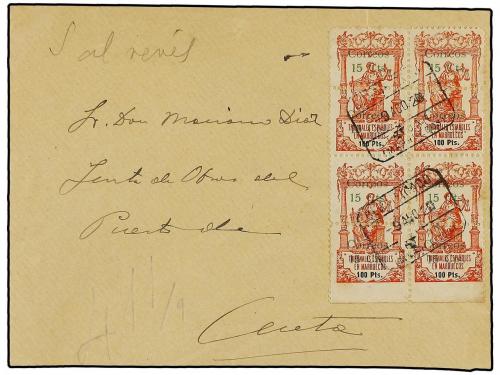 S al revés
Correos Correos
15 Cts 15 Cts
Correos Correos
TRIBUNALES ESPAÑOLES TRIBUNALES ESPAÑOLES
EN MARRUECOS EN MARRUECOS
100 Pts. 100 Pts.
Sr. Don Mariano Diaz
Junta de Obras del
Puerto de
Correos Correos
15 Cts
Correos Correos
TRIBUNALES ESPAÑOLES TRIBUNALES ESPAÑOLES
EN MARRUECOS EN MARRUECOS
100 Pts. 100 Pts.
Ceuta